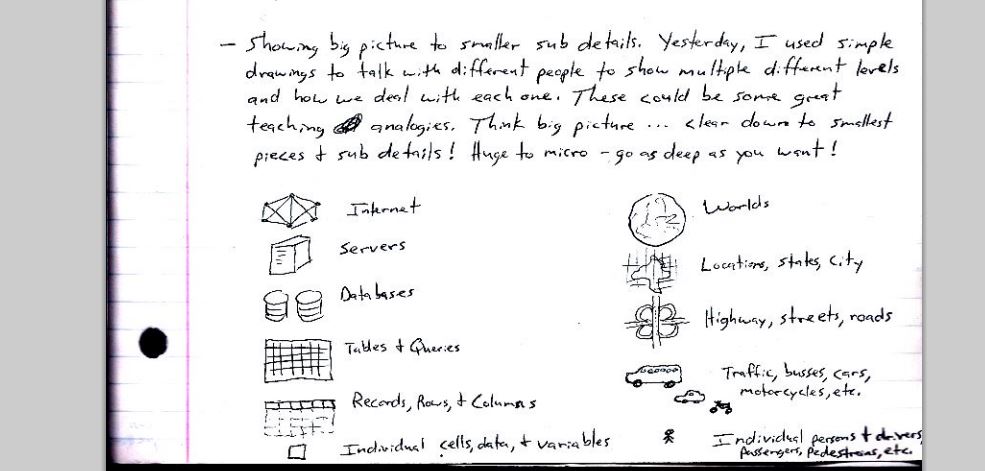 - Showing big picture to smaller sub details. Yesterday, I used simple
drawings to talk with different people to show multiple different levels
and how we deal with each one. These could be some great
teaching analogies. Think big picture ... clear down to smallest
pieces & sub details! Huge to micro - go as deep as you want!
Internet
Servers
Databases
Tables & Queries
Records, Rows, & Columns
Individual cells, data, & variables
Worlds
Locations, states, city
Highway, streets, roads
Traffic, busses, cars,
motorcycles, etc.
Individual persons & drivers
Passengers, Pedestrians, etc.